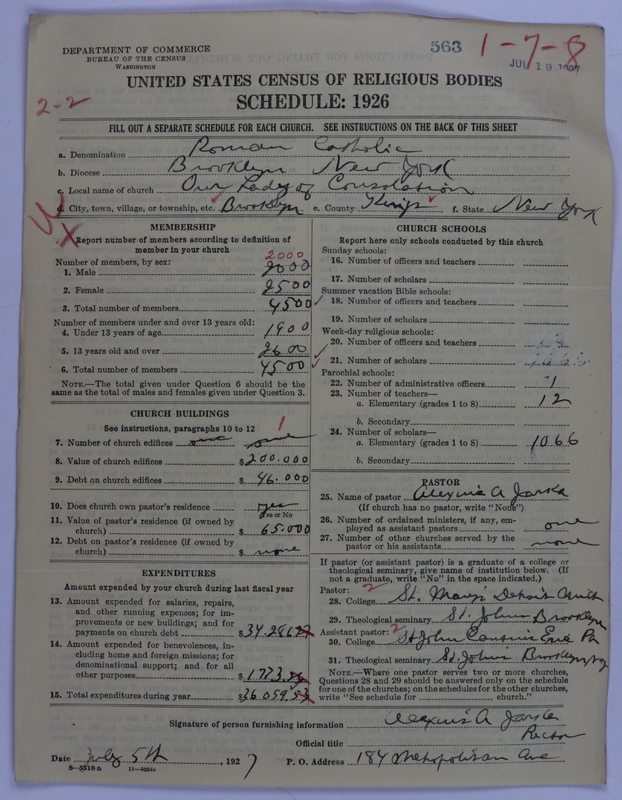 DEPARTMENT OF COMMERCE
BUREAU OF THE CENSUS
WASHINGTON
563
1-7-8
JUL 19 1927
2-2
UNITED STATES CENSUS OF RELIGIOUS BODIES
SCHEDULE: 1926
FILL OUT A SEPARATE SCHEDULE FOR EACH CHURCH. SEE INSTRUCTIONS ON THE BACK OF THIS SHEET
a. Denomination Roman Catholic
b. Diocese Brooklyn New York
c. Local name of church Our Lady of Consolation
d. City, town, village, or township, etc. Brooklyn e. County Kings f. State New York
MEMBERSHIP
Report number of members according to definition of
member in your church
Number of members, by sex: 2000
1. Male 2000
2. Female 2500
3. Total number of members 4500
Number of members under and over 13 years old:
4. Under 13 years of age 1900
5. 13 years old and over 2600
6. Total number of members 4500
NOTE.—The total given under Question 6 should be
same as the total of males and females given under Question 3.
CHURCH BUILDINGS
See instructions, paragraphs 10 to 12 1
7. Number of church edifices one one
8. Value of church edifices $200.000
9. Debt on church edifices $ 46.000
10. Does church own pastor's residence yes
Yes or No
11. Value of pastor's residence (if owned by
church) $ 65.000
12. Debt on pastor's residence (if owned by
church) $ none
EXPENDITURES
Amount expended by your church during last fiscal year
13. Amount expended for salaries, repairs,
and other running expenses; for im-
provements or new buildings; and for
payments on church debt $
14. Amount expended for benevolences, in-
cluding home and foreign missions; for
denominational support; and for all
other purposes $
15. Total expenditures during year $36.059.53
CHURCH SCHOOLS
Report here only schools conducted by this church
Sunday schools:
16. Number of officers and teachers
17. Number of scholars
Summer vacation Bible schools:
18. Number of officers and teachers
19. Number of scholars
Week-day religious schools:
20. Number of officers and teachers
21. Number of scholars
Parochial schools:
22. Number of administrative officers 1
23. Number of teachers—
a. Elementary (grades 1 to 8) 12
b. Secondary
24. Number of scholars—
a. Elementary (grades 1 to 8) 1066
b. Secondary
PASTOR
25. Name of pastor A
(If church has no pastor, write "None")
26. Number of ordained ministers, if any, em-
ployed as assistant pastors one
27. Number of other churches served by the
pastor or his assistants none
If pastor (or assistant pastor) is a graduate of a college or
theological seminary, give name of institution below. (If
not a graduate, write "No" in the space indicated.)
Pastor: 2
28. College St. Mary's Detroit
29. Theological seminary St. Johns Brooklyn
Assistant pastor: 2
30. College St John
31. Theological seminary St. Johns Brooklyn
NOTE.—Where one pastor serves two or more churches,
Questions 28 and 29 should be answered only on the schedule
for one of the churches; on the schedules for the other churches,
write "See schedule for church."
Signature of person furnishing information A
Official title Rector
Date July 5th, 1927 P. O. Address 184 Metropolitan Ave
8—5518 a